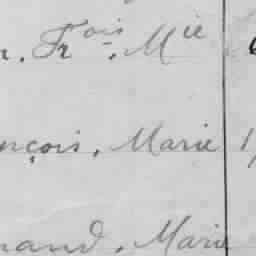 r. Fr^ois. M^ie
nçois, Marie 1
nand, Marie